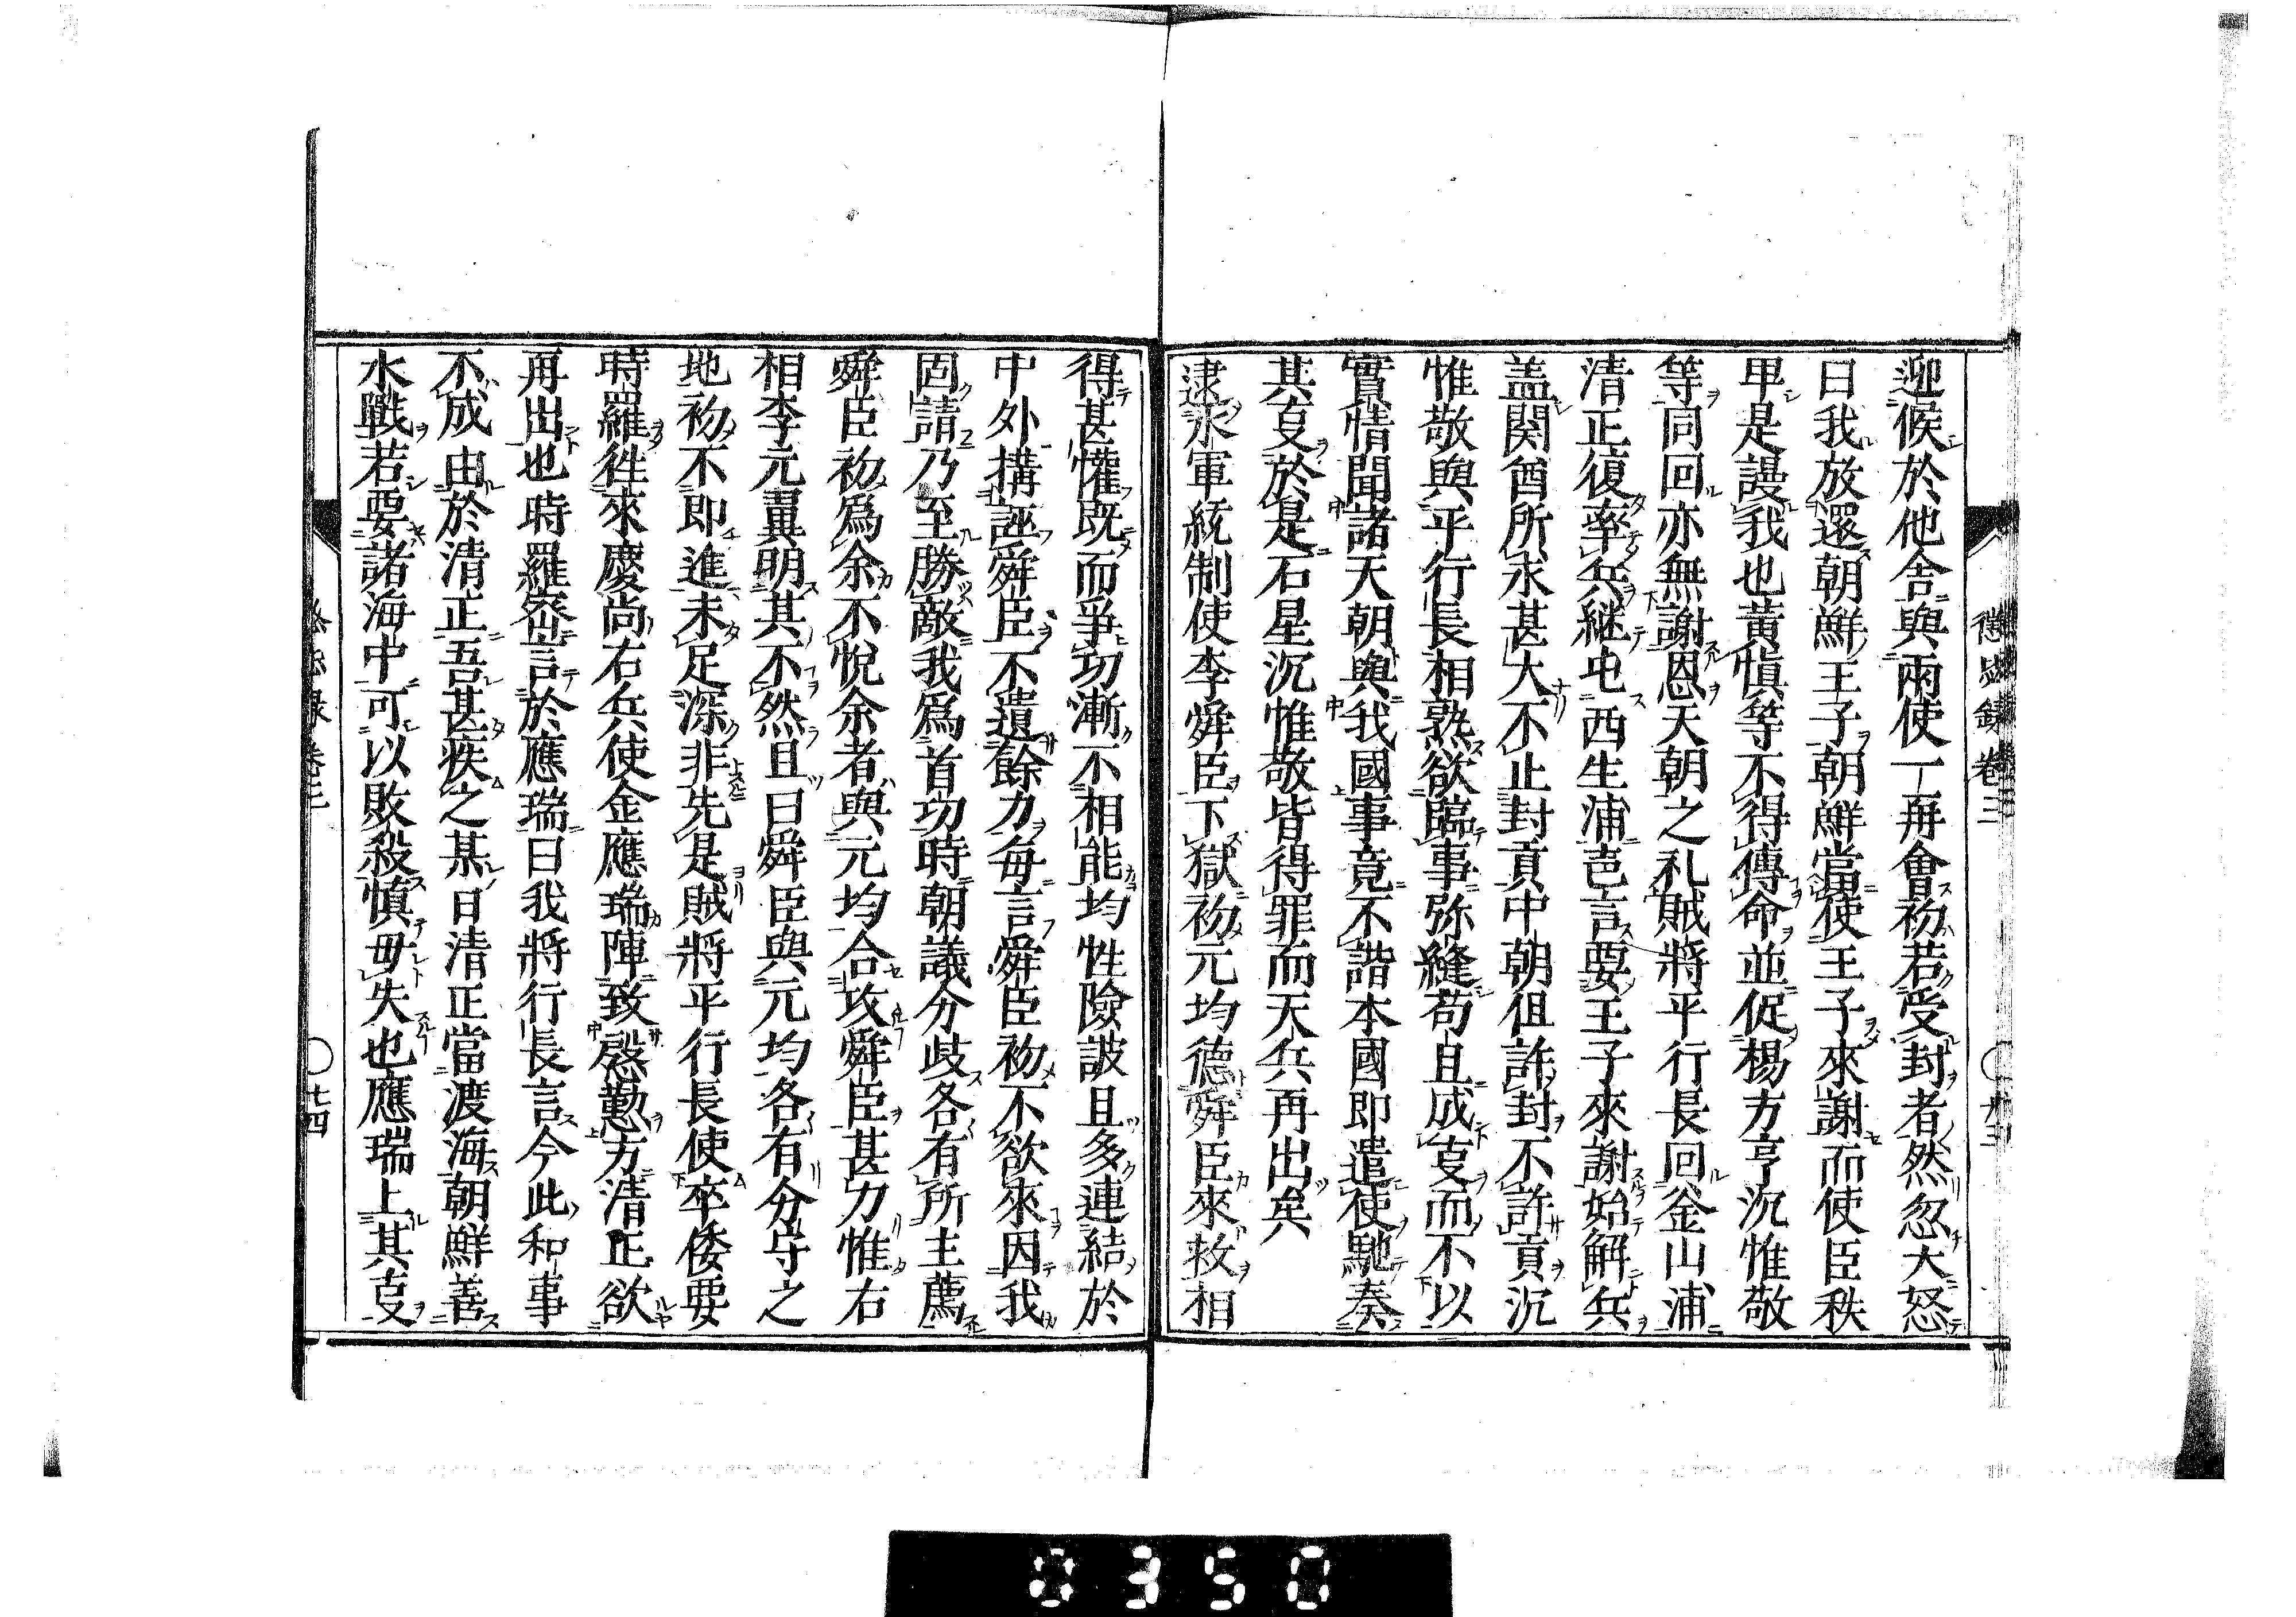 懲毖錄卷三
迎候於他舍與兩使一再會初若受封者然忽大怒
曰我放還朝鮮王子朝鮮當使王子來謝而使臣秩
卑是謾我也黃愼等不得傳命並促楊方亨沉惟敬
等同回亦無謝恩天朝之礼賊將平行長回釜山浦
清正復率兵継屯西生浦邑言要王子來謝始解兵
盖関酋所求甚大不止封貢中朝但許封不許貢沉
惟敬與平行長相熟欲臨事弥縫苟且成叓而不以
實情聞諸天朝與我國事竟不諧本國即遣使馳奏
其叓於是石星沉惟敬皆得罪而天兵再出矣
逮水軍統制使李舜臣下獄初元均德舜臣來救相
得甚懽既而爭功漸不相能均性險詖且多連結於
中外搆誣舜臣不遺餘力每言舜臣初不欲來因我
固請乃至勝敵我爲首功時朝議分歧各有所主薦
舜臣初爲余不悅余者與元均合攻舜臣甚力惟右
相李元翼明其不然且曰舜臣與元均各有分守之
地初不即進未足深非先是賊將平行長使卒倭要
時羅徃來慶尚右兵使金應瑞陣致慇懃方清正欲
再出也時羅密言於應瑞曰我將行長言今此和事
不成由於清正吾甚疾之某日清正當渡海朝鮮善
水戰若要諸海中可以敗殺愼毋失也應瑞上其叓
卷三
十四
0350